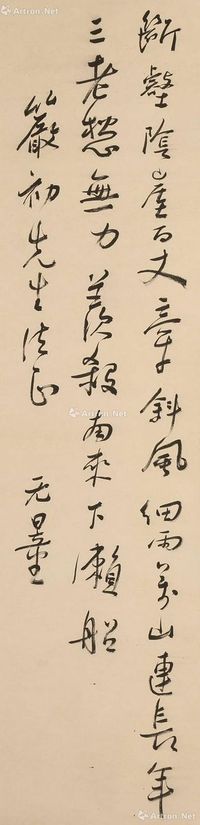 斷壑陰崖百丈牽斜風細雨萬山連長年
三老愁無力羨殺南來下瀨船
嚴初先生法正
无量
Artron.Net
Artron.Net
Artron.Net
Artron.Net